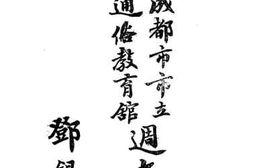 成都市市立
通俗教育館週
鄧